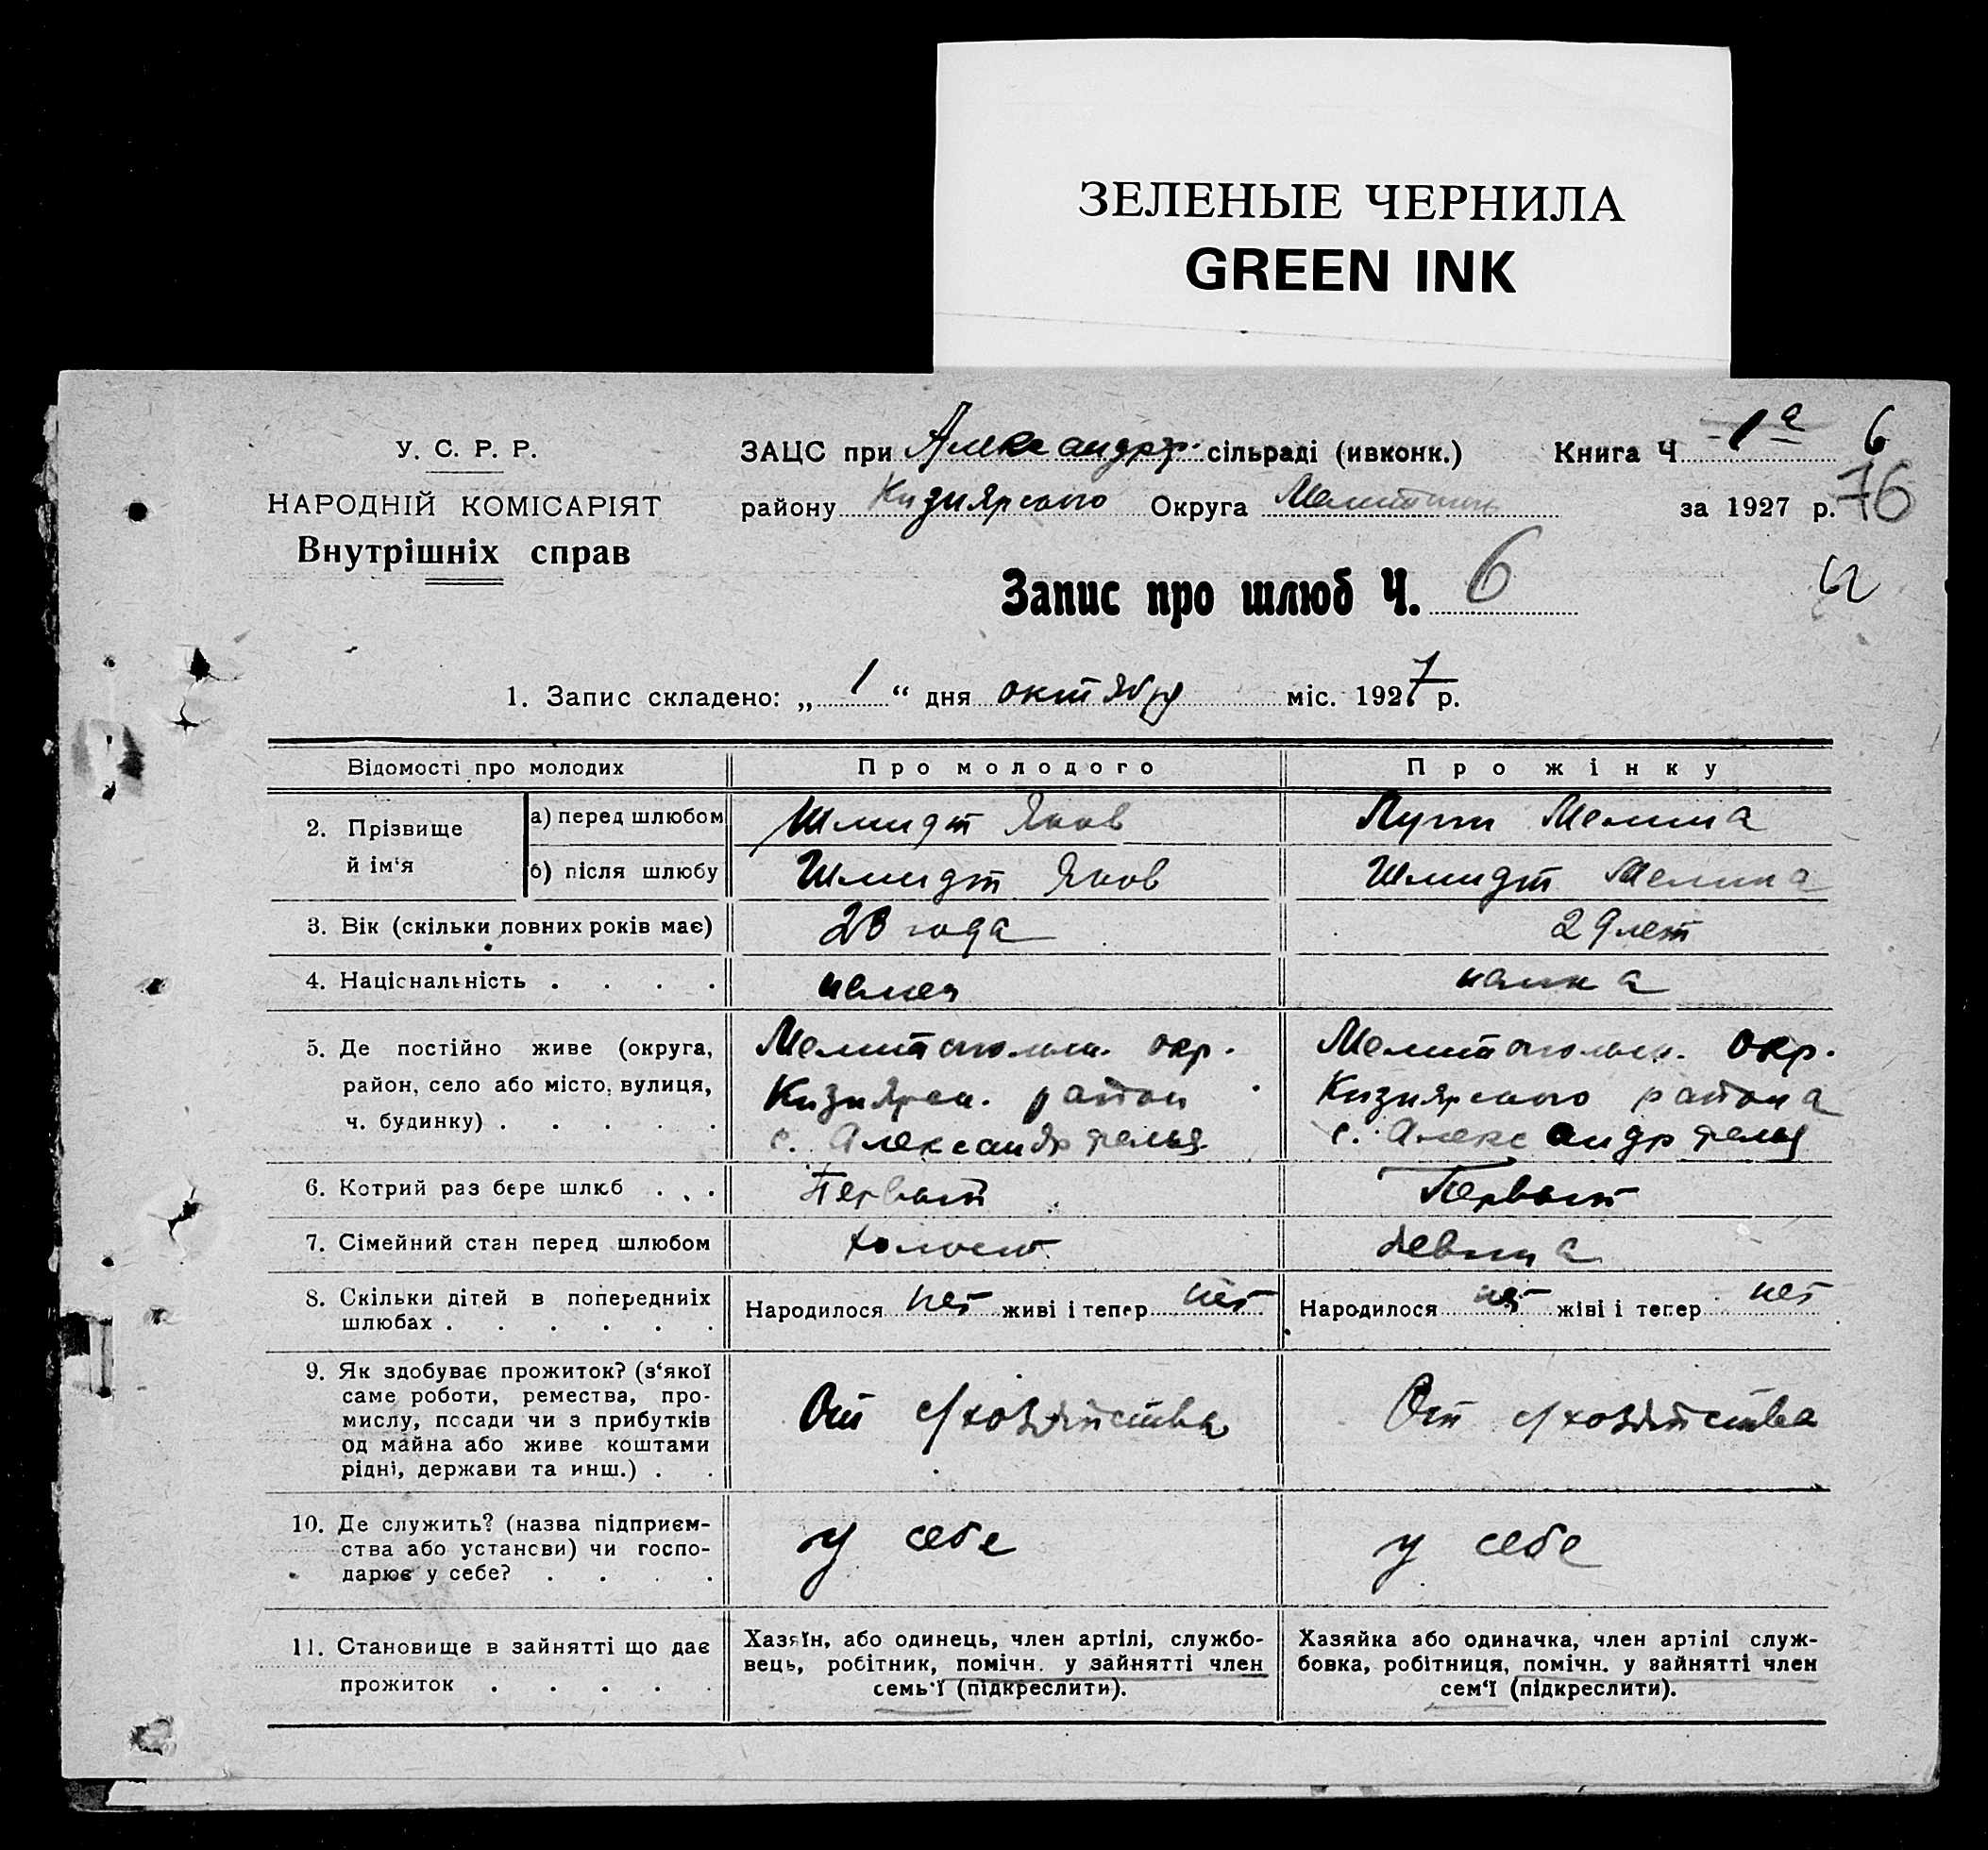 ЗЕЛЕНЫЕ ЧЕРНИЛА
GREEN INK
У. С. Р. Р.
НАРОДНІЙ КОМІСАРІЯТ
Внутрішніх справ
ЗАЦС при Александрф. сільраді (ивконк.) Книга Ч 1а 6
району Кизиярсого Округа за 1927 р. 76
Запис про шлюб Ч. 6
1. Запис складено: „ 1 “ дня октября міс. 1927 р.
Відомості про молодих
Про молодого
Про жінку
2. Прізвище й ім'я
а) перед шлюбом
Шмидт Яков
Мелита
б) після шлюбу
Шмидт Яков
Шмидт Мелита
3. Вік (скільки повних років має)
23 года
29 лет
4. Національність . . . .
немец
немка
5. Де постійно живе (округа,
район, село або місто, вулиця,
ч. будинку) . . . . .
Мелитопольск. окр.
Кизиярск. район
с. Александрфельд
Мелитопольск. окр.
Кизиярского района
с. Александрфельд
6. Котрий раз бере шлюб . . .
Первый
Первый
7. Сімейний стан перед шлюбом
холост
девица
8. Скільки дітей в попередніх
шлюбах . . . . . .
Народилося нет живі і тепер нет
Народилося нет жіві і тепер нет
9. Як здобуває прожиток? (з'якої
саме роботи, ремества, про-
мислу, посади чи з прибутків
од майна або живе коштами
рідні, держави та инш.) . .
От с/хозяйства
От с/хозяйства
10. Де служить? (назва підприєм-
ства або установи) чи госпо-
дарює у себе? . . . .
у себе
у себе
11. Становище в зайнятті що дає
прожиток . . . . .
Хазяїн, або одинець, член артілі, службо-
вець, робітник, помічн. у зайнятті член
семь'ї (підкреслити).
Хазяйка або одиначка, член артілі служ-
бовка, робітниця, помічн. у зайнятті член
сем'ї (підкреслити).